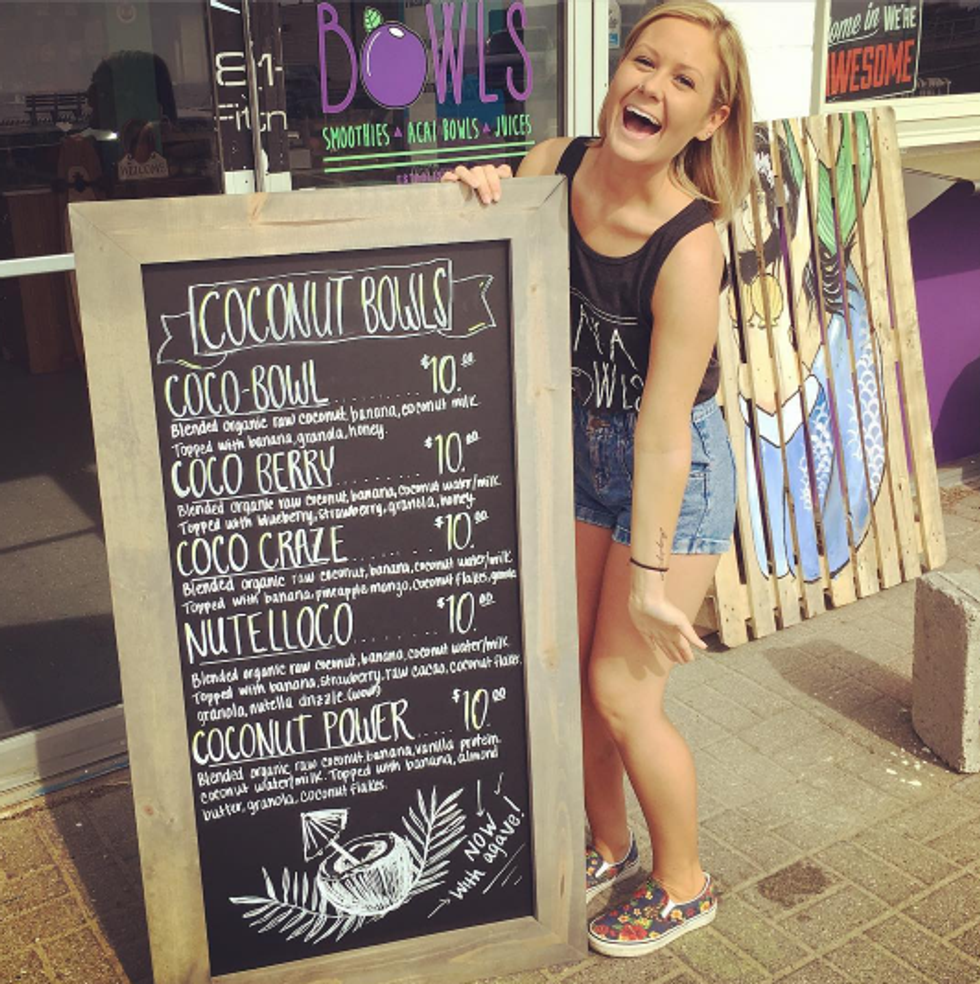 BOWLS
SMOOTHIES ACAI BOWLS JUICES
Come in WE'RE
AWESOME
WELCOME
COCONUT BOWLS
COCO-BOWL $10.00
Blended organic raw coconut, banana, coconut milk.
Topped with banana, granola, honey.
COCO BERRY $10.00
Blended organic raw coconut, banana, coconut water/milk.
Topped with blueberry, strawberry, granola, honey.
COCO CRAZE $10.00
Blended organic raw coconut, banana, coconut water/milk.
Topped with banana, pineapple mango, coconut flakes, granola
NUTELLOCO $10.00
Blended organic raw coconut, banana, coconut water/milk.
Topped with banana, strawberry, raw cacao, coconut flakes,
granola, nutella drizzle. (wow)
COCONUT POWER $10.00
Blended organic raw coconut, banana, vanilla protein
coconut water/milk. Topped with banana, almond
butter, granola, coconut flakes.
NOW
with agave!